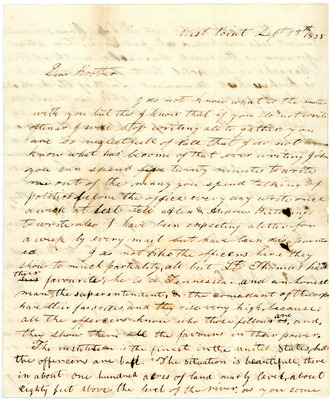 West Point Sept 18th 1838
Dear Brother
I do not know what is the matter
with you but this I know that if you do not write
sooner I will stop writing all to gather you
are so neglectfull of late that I do not
know what has become of that ever writing John
you can spend twenty minutes to write
me out of the many you spend talking
politics before the office every day write once
a week at lest tell Alex & Sharon that they
to write also I have been expecting a letter for
a week by every mail but have been disapoint
ed. I do not like the officers here they
show to much partiality, all but Lt. Thomas has
favourits, he is a Tennessean and an honest
man, the superentendent, & the comedant of the corps
have their favorites, and they rise very high, because
all the officers know who there fellows are and,
they show them all the favours in their power.
The institution is the finest in the united States, but
the officers are bad. The situation is beautifull, there
is about one hundred acres of land nearly level, about
eighty feet above the level of the river, as you come